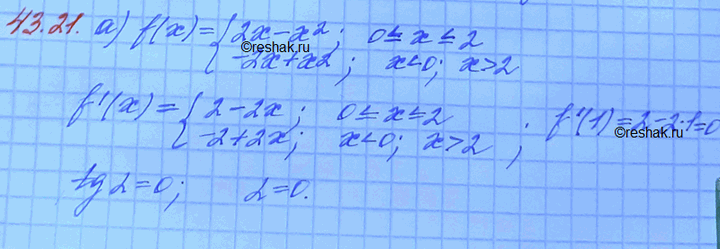 43.21. а) f(x) = { 2x - x²; 0 ≤ x ≤ 2
-2x + x2; x<0; x>2
©reshak.ru
f'(x) = { 2 - 2x; 0 ≤ x ≤ 2
-2 + 2x; x<0; x>2 ; f'(1) = 2 - 2·1 = 0
©reshak.ru
tg α = 0; α = 0.